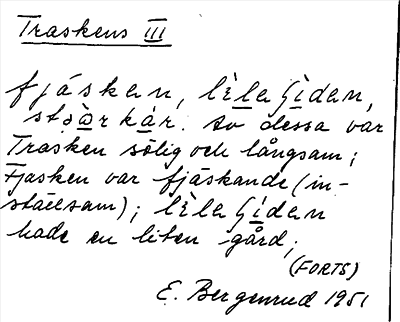 Traskens III
fjásken, lèla Gìdan,
stòŋrkár. Av dessa var
Trasken sölig och långsam;
Fjasken var fjäskande (in-
ställsam); lèla Gìdan
hade en liten gård;
(FORTS)
E. Bergenrud 1951